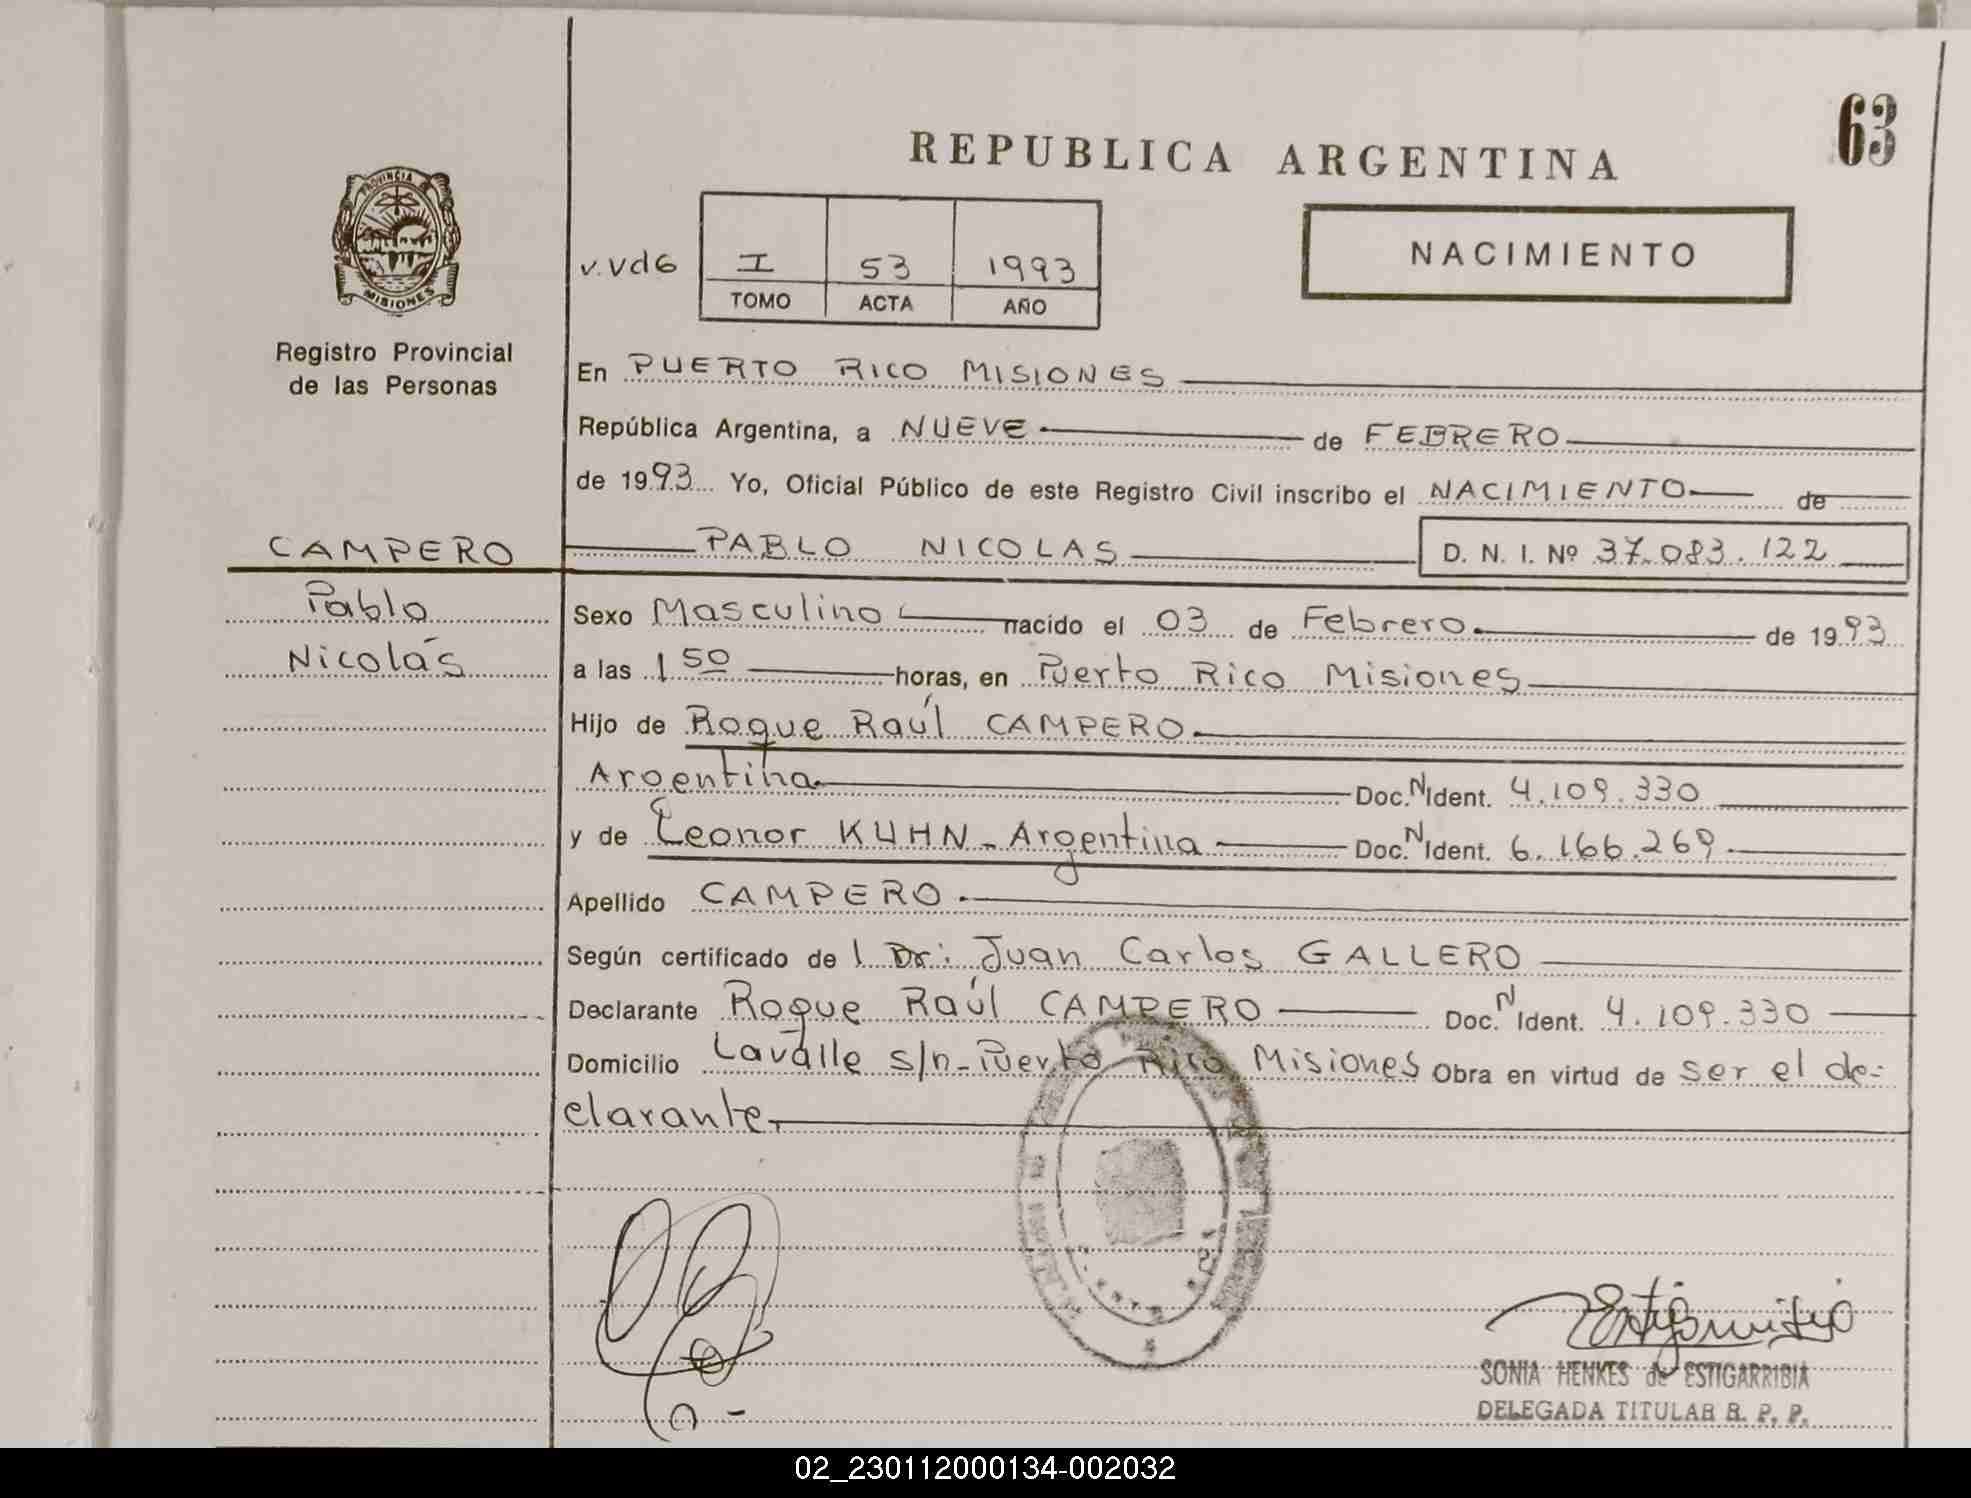 63
REPUBLICA ARGENTINA
PROVINCIA DE
MISIONES
Registro Provincial
de las Personas
NACIMIENTO
v.vd6 I 53 1993
TOMO ACTA AÑO
En PUERTO RICO MISIONES
República Argentina, a NUEVE de FEBRERO
de 1993 Yo, Oficial Público de este Registro Civil inscribo el NACIMIENTO de
CAMPERO PABLO NICOLAS D. N. I. Nº 37.083.122
Pablo
Nicolás
Sexo Masculino nacido el 03 de Febrero de 1993
a las 1 50 horas, en Puerto Rico Misiones
Hijo de Roque Raúl CAMPERO
Argentina Doc. N Ident. 4.109.330
y de Leonor KUHN - Argentina Doc. N Ident. 6.166.269
Apellido CAMPERO
Según certificado de l Dr: Juan Carlos GALLERO
Declarante Roque Raúl CAMPERO Doc. N Ident. 4.109.330
Domicilio Lavalle s/n - Puerto Rico Misiones Obra en virtud de ser el de-
clarante
SONIA HENKES de ESTIGARRIBIA
DELEGADA TITULAR R. P. P.
02_230112000134-002032